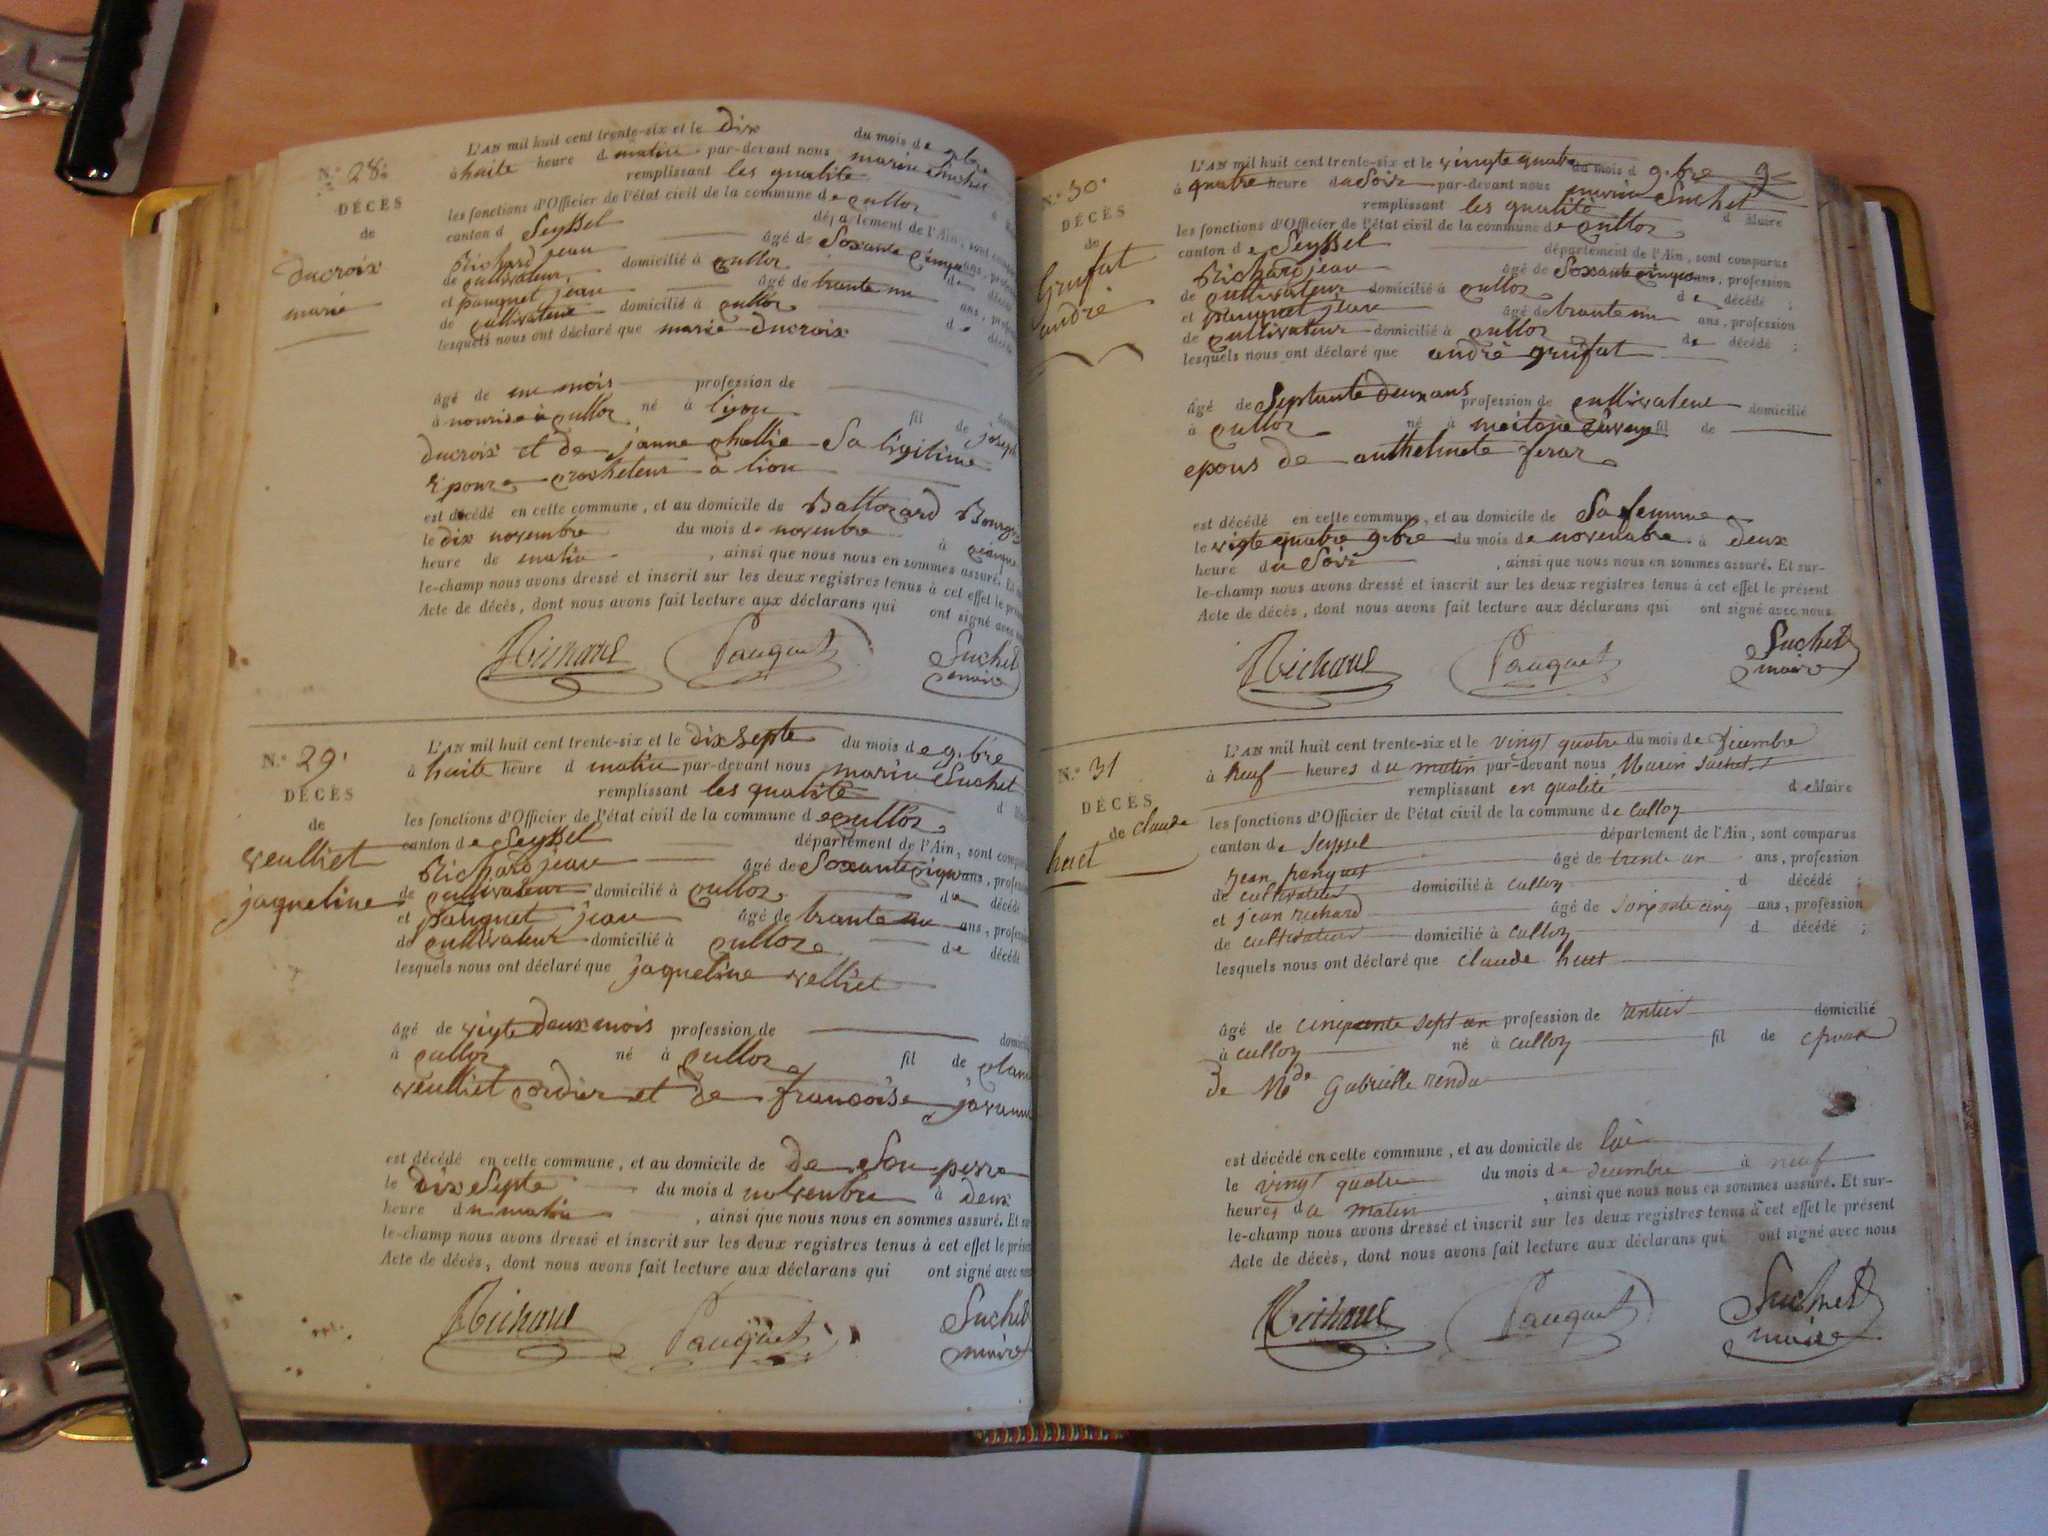 N.º 28.
DÉCÈS
de
ducroix
marie
L'AN mil huit cent trente-six et le dix du mois de
à huite heure d matin par-devant nous marin Suchet
remplissant les qualité
les fonctions d'Officier de l'état civil de la commune de culloz
canton d Seyssel département de l'Ain, sont
Richard jean âgé de Soxante cinq ans,
de cultivateur domicilié à culloz de
et pauquet jean âgé de trante un ans,
de cultivateur domicilié à culloz de
lesquels nous ont déclaré que marie ducroix
âgé de un mois profession de
à nourise à culloz né à lion fil de joseph
ducroix et de janne challie Sa ligitime
epouze crocheteur à lion
est décédé en cette commune, et au domicile de Baltozard
le dix novembre du mois de novembre à cinque
heure de matin , ainsi que nous nous en sommes assuré. Et
le-champ nous avons dressé et inscrit sur les deux registres tenus à cet effet le
Acte de décès, dont nous avons fait lecture aux déclarans qui ont signé avec
Richard Pauquet Suchet
maire
N.º 29.
DÉCÈS
de
veulliet
jaqueline
L'AN mil huit cent trente-six et le dix septe du mois de 9.bre
à huite heure d matin par-devant nous marin Suchet
remplissant les qualité d
les fonctions d'Officier de l'état civil de la commune de culloz
canton de Seyssel département de l'Ain, sont
Richard jean âgé de Soxante cinq ans,
de cultivateur domicilié à culloz de décédé
et pauquet jean âgé de trante un ans,
de cultivateur domicilié à culloz de décédé
lesquels nous ont déclaré que jaqueline velliet
âgé de vigte deux mois profession de
à culloz né à culloz fil de
veulliet cordier et de françoise
est décédé en cette commune, et au domicile de de Son perre
le dix Septe du mois d novembre à deux
heure du matin , ainsi que nous nous en sommes assuré. Et
le-champ nous avons dressé et inscrit sur les deux registres tenus à cet effet le
Acte de décès, dont nous avons fait lecture aux déclarans qui ont signé avec
Richard Pauquet Suchet
maire
N.º 30.
DÉCÈS
de
Grufat
andré
L'AN mil huit cent trente-six et le vingte quatre du mois d 9.bre
à quatre heure du Soir par-devant nous marin Suchet
remplissant les qualité d Maire
les fonctions d'Officier de l'état civil de la commune de culloz
canton de Seyssel département de l'Ain, sont comparus
Richard jean âgé de Soxante cinque ans, profession
de cultivateur domicilié à culloz de décédé ;
et pauquet jean âgé de trante un ans, profession
de cultivateur domicilié à culloz de décédé ;
lesquels nous ont déclaré que andré grufat
âgé de Septante deux ans profession de cultivateur domicilié
à culloz né à fil de
epous de anthelmete
est décédé en cette commune, et au domicile de Sa femme
le vigte quatre 9.bre du mois de novembre à deux
heure du Soir , ainsi que nous nous en sommes assuré. Et sur-
le-champ nous avons dressé et inscrit sur les deux registres tenus à cet effet le présent
Acte de décès, dont nous avons fait lecture aux déclarans qui ont signé avec nous
Richard Pauquet Suchet
maire
N.º 31
DÉCÈS
de claude
huet
L'AN mil huit cent trente-six et le vingt quatre du mois de Décembre
à neuf heures du matin par-devant nous Marin Suchet
remplissant en qualité de Maire
les fonctions d'Officier de l'état civil de la commune de culloz
canton de Seyssel département de l'Ain, sont comparus
jean pauquet âgé de trente un ans, profession
de cultivateur domicilié à culloz d décédé ;
et jean richard âgé de soixante cinq ans, profession
de cultivateur domicilié à culloz d décédé ;
lesquels nous ont déclaré que claude huet
âgé de cinquante sept an profession de rentier domicilié
à culloz né à culloz fil de époux
de Mde Gabrielle rendu
est décédé en cette commune, et au domicile de lui
le vingt quatre du mois de décembre à neuf
heures du matin , ainsi que nous nous en sommes assuré. Et sur-
le-champ nous avons dressé et inscrit sur les deux registres tenus à cet effet le présent
Acte de décès, dont nous avons fait lecture aux déclarans qui ont signé avec nous
Richard Pauquet Suchet
maire